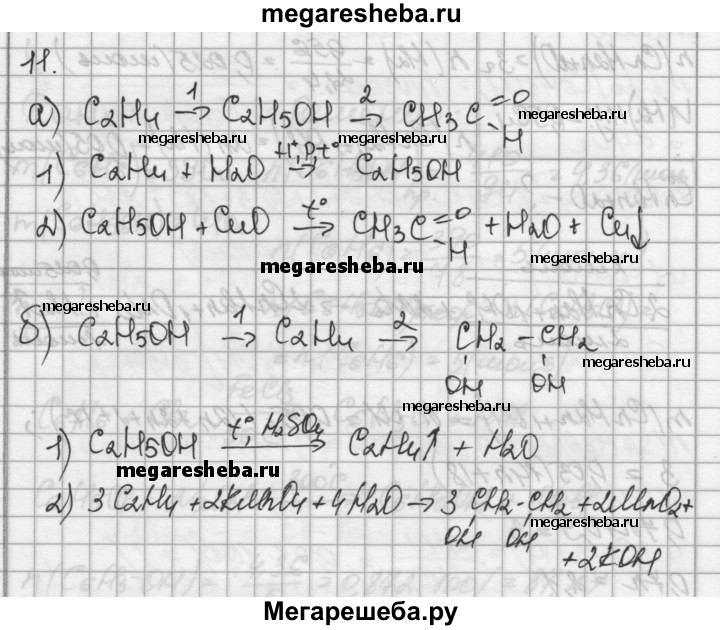 megaresheba.ru
11.
а) C2H4 1→ C2H5OH 2→ CH3C=O
H
megaresheba.ru megaresheba.ru megaresheba.ru
1) C2H4 + H2O H+, p, t°→ C2H5OH
2) C2H5OH + CuO t°→ CH3C=O + H2O + Cu↓
H
megaresheba.ru megaresheba.ru
megaresheba.ru
б) C2H5OH 1→ C2H4 2→ CH2 - CH2
OH OH
megaresheba.ru
megaresheba.ru
1) C2H5OH t°, H2SO4→ C2H4↑ + H2O
megaresheba.ru
2) 3C2H4 + 2KMnO4 + 4H2O → 3CH2-CH2 + 2MnO2 +
OH OH
megaresheba.ru
+ 2KOH
Мегарешеба.ру